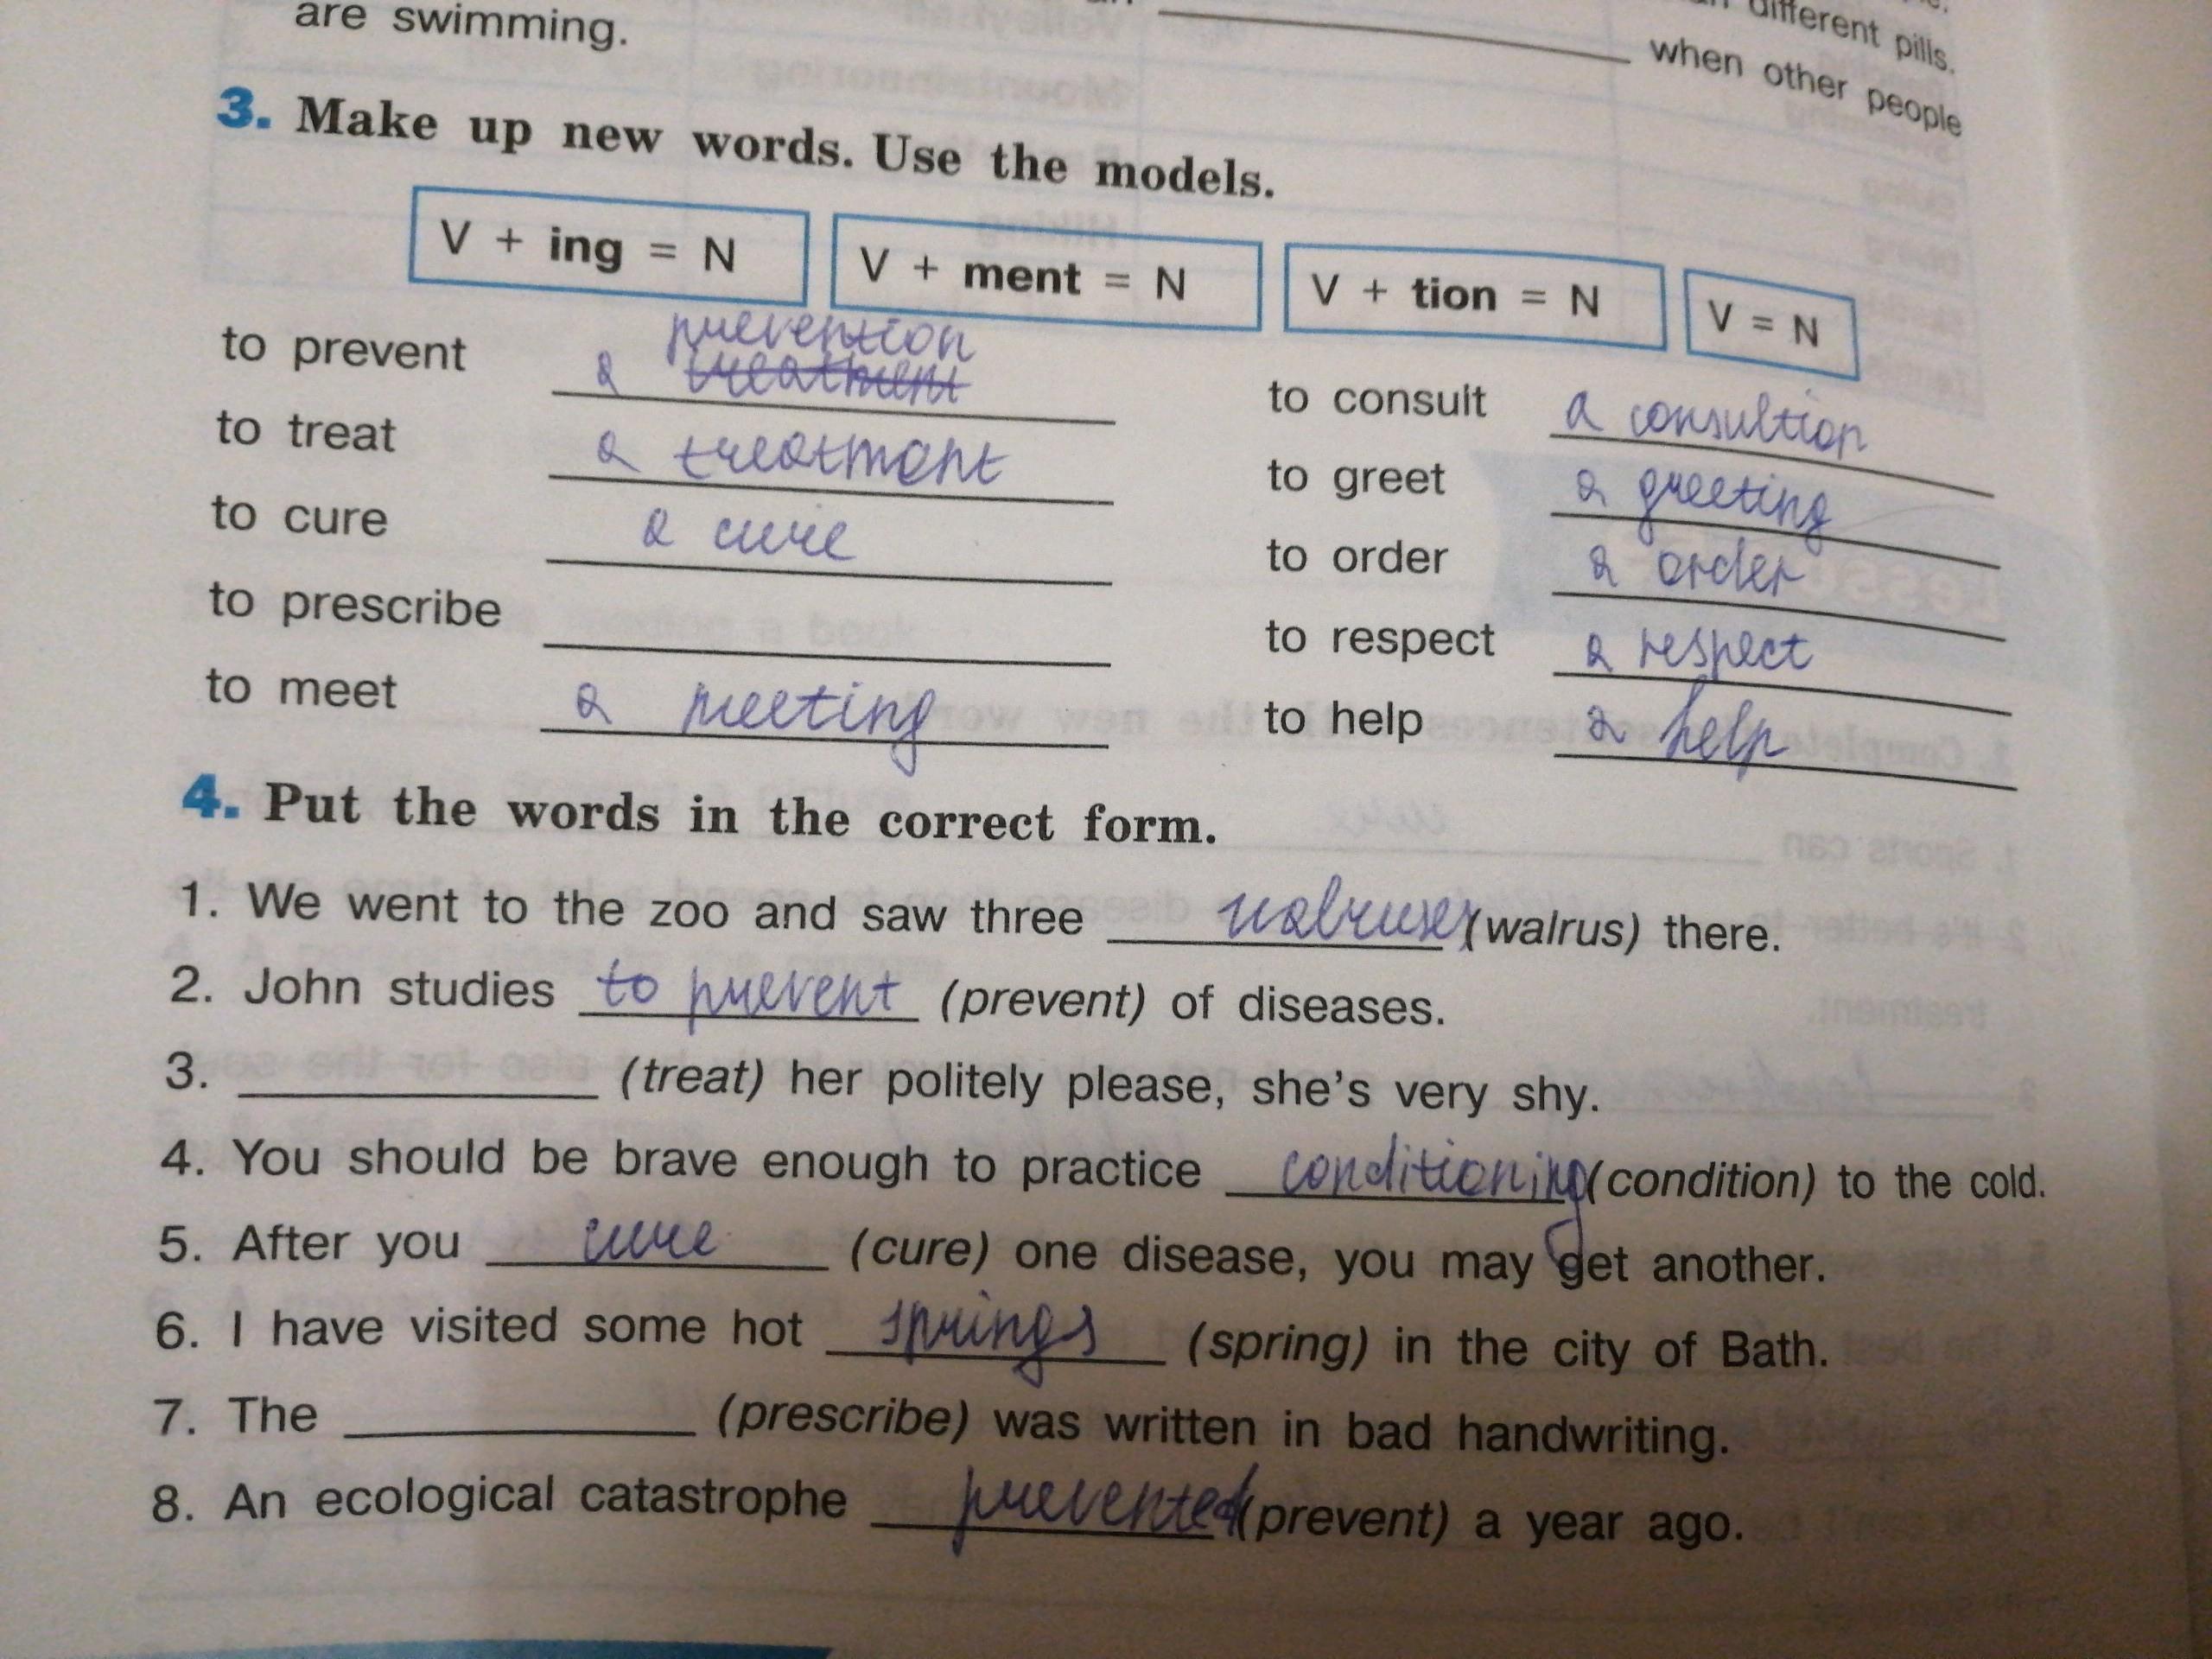 different pills.
are swimming. when other people
3. Make up new words. Use the models.
V + ing = N V + ment = N V + tion = N V = N
prevention
to prevent a treatment to consult a consultion
to treat a treatment to greet a greeting
to cure a cure to order a order
to prescribe to respect a respect
to meet a meeting to help a help
4. Put the words in the correct form.
1. We went to the zoo and saw three walruses (walrus) there.
2. John studies to prevent (prevent) of diseases.
3. (treat) her politely please, she's very shy.
4. You should be brave enough to practice conditioning (condition) to the cold.
5. After you cure (cure) one disease, you may get another.
6. I have visited some hot springs (spring) in the city of Bath.
7. The (prescribe) was written in bad handwriting.
8. An ecological catastrophe prevented (prevent) a year ago.